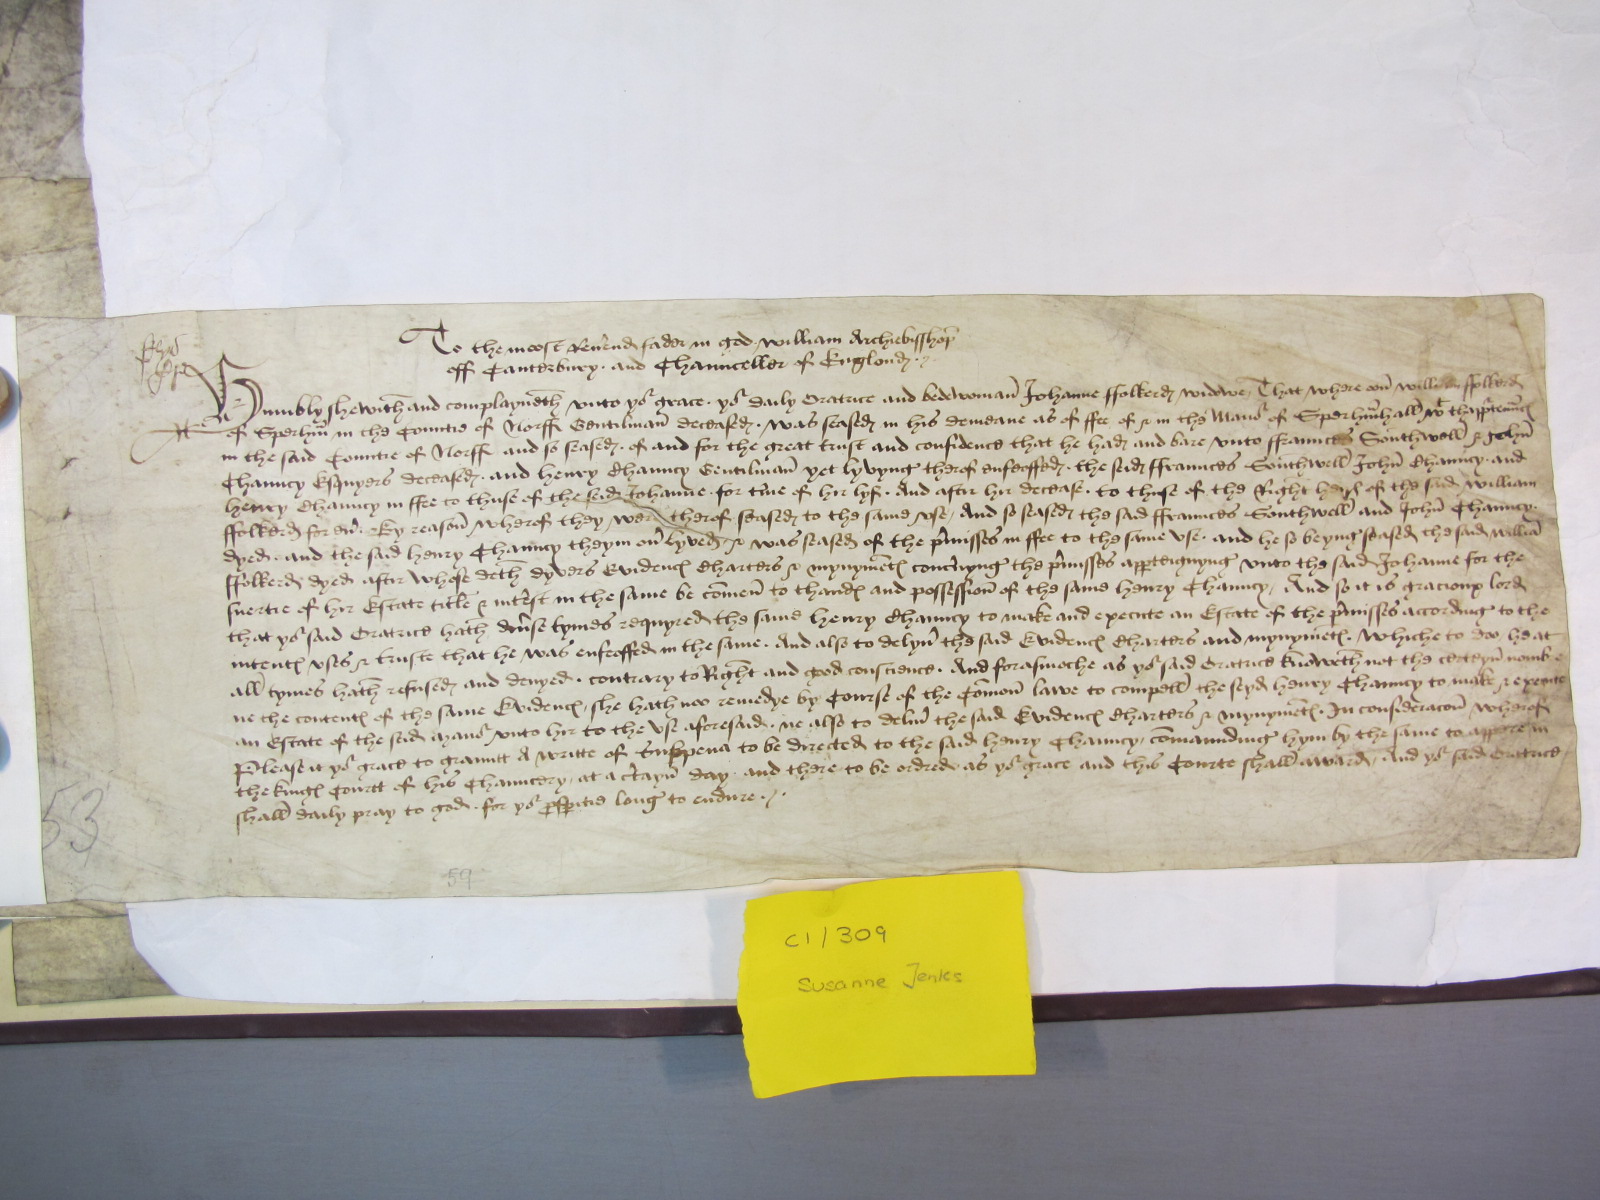 To the moost Reuend fader in god William Archiebisshop
off Canterbury and Chaunceller of Englond
Humbly shewith and complayneth vnto yor grace yor daily Oratrice and bedewoman Johanne ffolkerd widowe That where on William ffolkerd
of Sperhm in the Countie of Norff Gentilman deceased was seased in his demeane as of ffee of & in the Manor of Sperhmhall wt thapptennce
in the said Countie of Norff and so seased of and for the great trust and confidence that he had and bare vnto ffraunces Southwell & John
Chauncy Esquyers deceased and henry Chauncy Gentilman yet lyvyng therof enfeoffed the seid ffraunces Southwell John Chauncy and
henry Chauncy in ffee to thuse of the seid Johanne for tme of hir lyf And aftir hir decease to thuse of the Right heires of the said William
ffolkerd for eur By reason wherof they were therof seased to the same vse And so seased the said ffraunces Southwell and John Chauncy
dyed and the said henry Chauncy theym ou lyved & was seased of the pmisses in ffee to the same vse and he so beyng seased the said William
ffolkerd dyed aftir whose deth dyvers Evidences Charters & mynyments concnyng the pmisses apperteignyng vnto the said Johanne for the
suertie of hir Estate title & intrest in the same be comen to thands and possession of the same henry Chauncy And so it is gracioux lord
that yor said Oratrice hath diuse tymes requyred the same henry Chauncy to make and execute an Estate of the pmisses according to the
intents vses & truste that he was enfeoffed in the same And also to delyur the said Evidences Charters and mynyments Whiche to doo he at
all tymes hath refused and denyed contrary to Right and good conscience And forasmoche as yor said Oratrice knoweth not the certeyn nombre
ne the contents of the same Evidences she hath noo remedye by Course of the Comon lawe to compell the seyd henry Chauncy to make & execute
an Estate of the seid Manor vnto hir to the vse aforesaid ne also to deliur the said Evidences Charters & mynyments In consideracon wherof
Please it yor grace to graunte A writte of Subpena to be directed to the said henry Chauncy comaunding hym by the same to appere in
the kings Court of his Chauncery at a crtayn day and there to be ordred as yor grace and this Courte shall awarde And yor said Oratrice
shall daily pray to god for yor pspitie long to endure
53
59
C1/309
Susanne Jenks